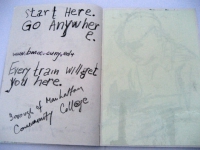 Start Here.
GO Anywher
e.
www.bmcc.cuny.edu
Every train will get
you here.
Borough of Manhattan
Community College